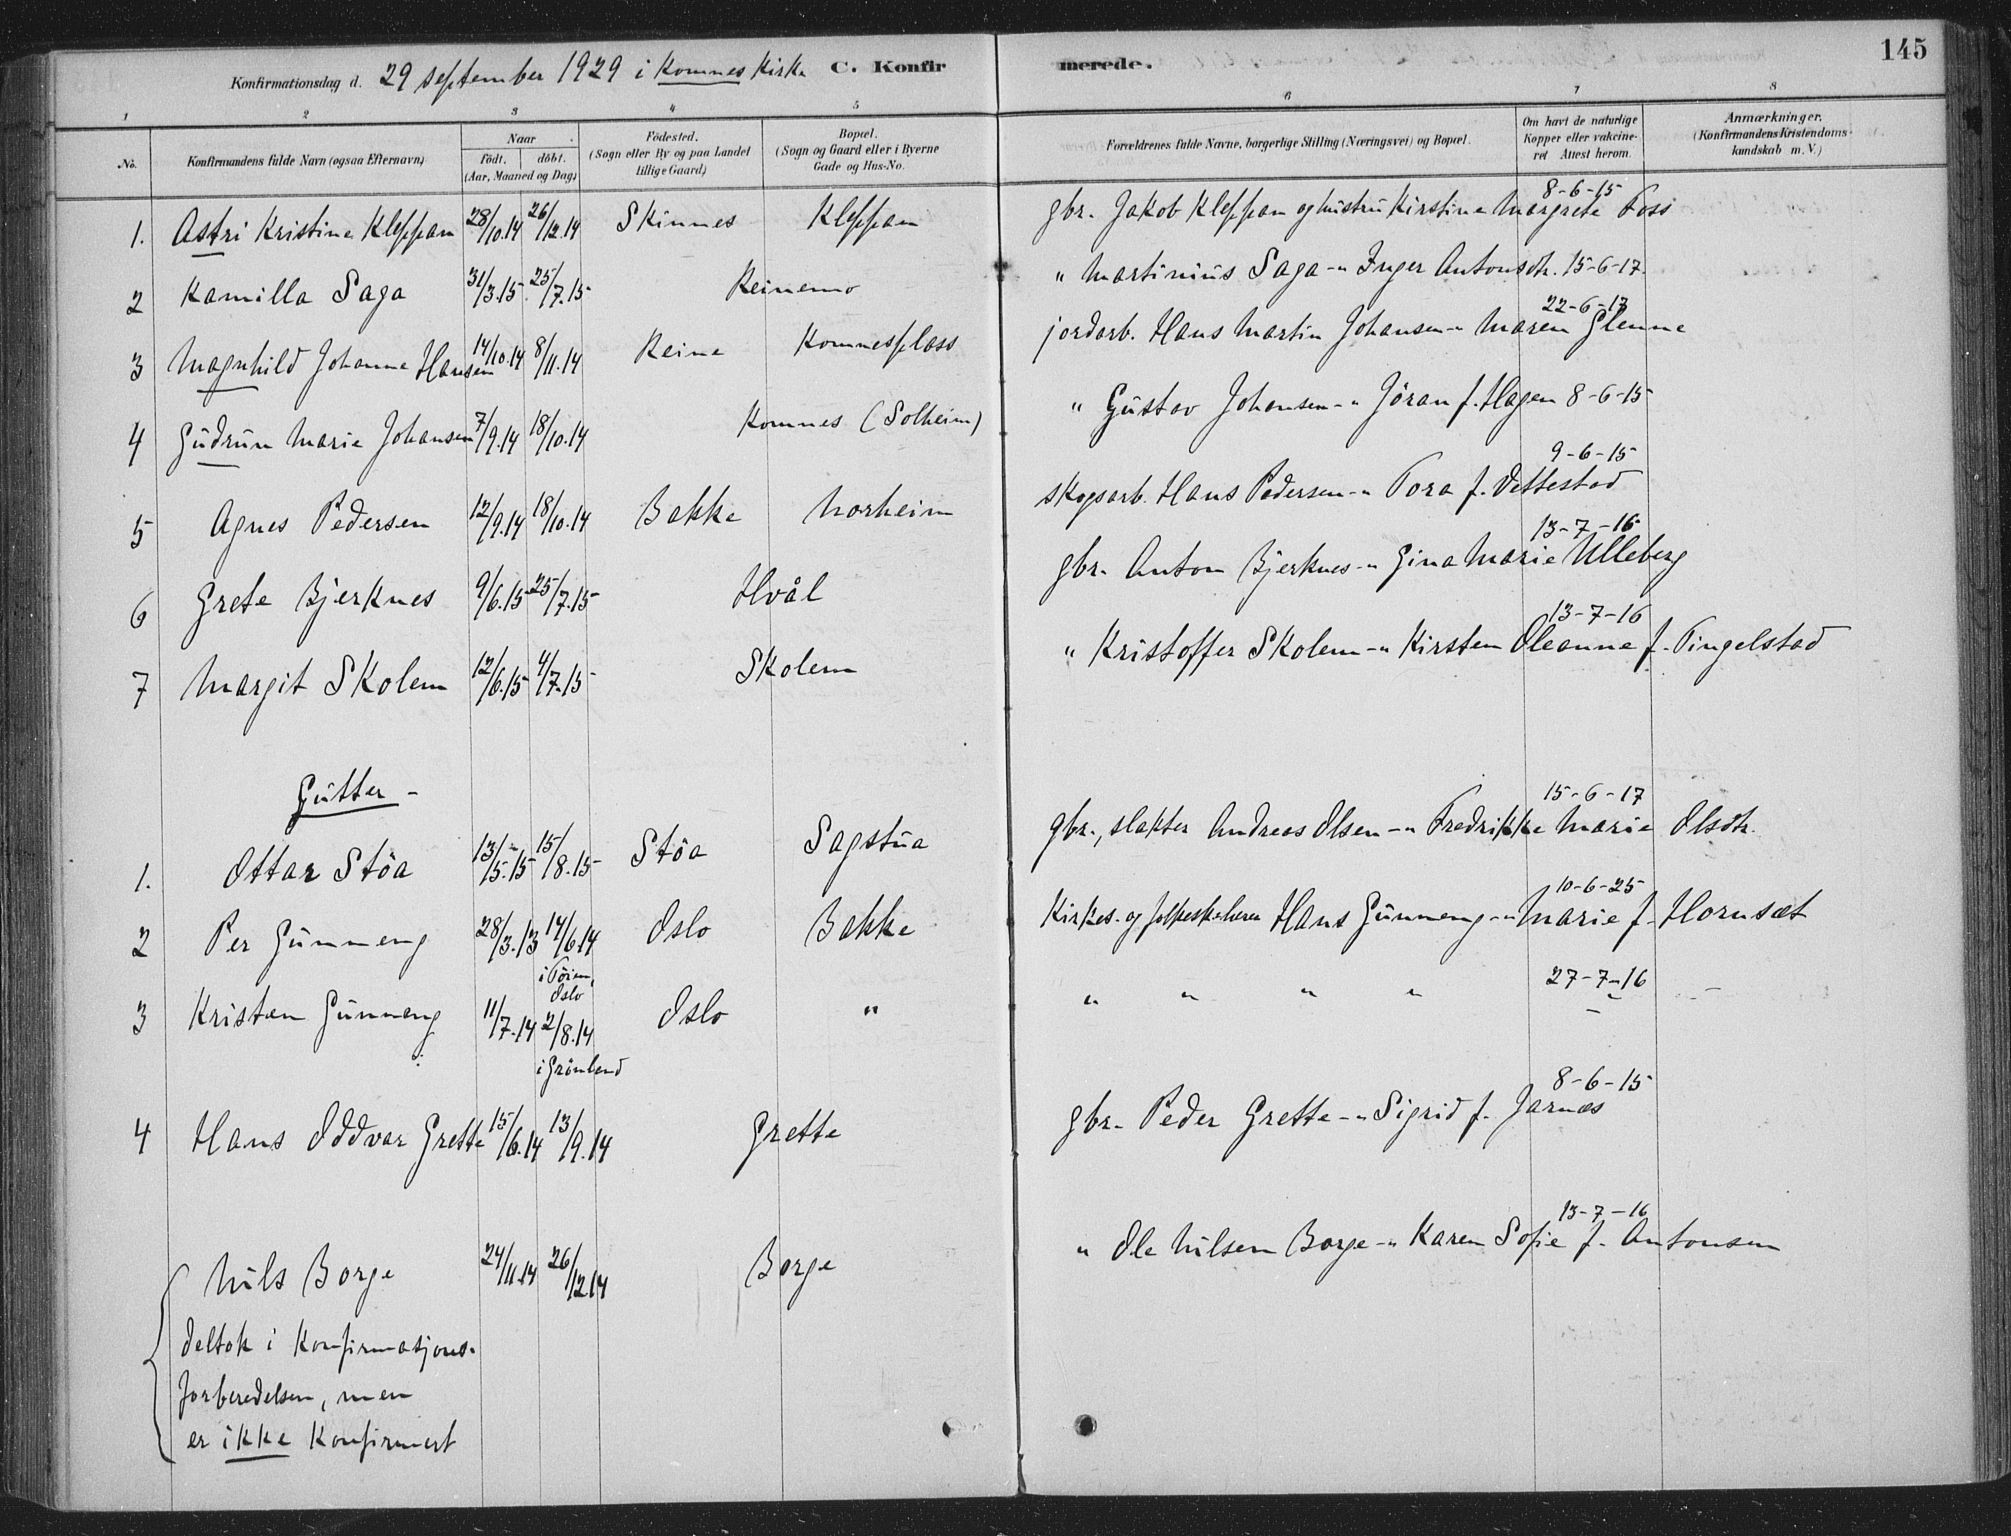 145
Konfirmationsdag d. 29 september 1929 i Komnes Kirke C. Konfirmerede.
1 2 3 4 5 6 7 8
No. Konfirmandens fulde Navn (ogsaa Efternavn) Naar födt. döbt. (Aar, Maaned og Dag) Födested. (Sogn eller By og paa Landet tillige Gaard) Bopæl. (Sogn og Gaard eller i Byerne Gade og Hus-No. Forældrenes fulde Navne, borgerlige Stilling (Næringsvei) og Bopæl. Om havt de naturlige Kopper eller vakcineret Attest herom. Anmærkninger. (Konfirmandens Kristendomskundskab m. V.)
1. Astri Kristine Kleppan 28/10.14 26/12.14 Skinnes Kleppan gbr. Jakob Kleppan og hustru Kirstine Margrete Foss 8-6-15
2 Kamilla Saga 31/3.15 25/7.15 Reinemo " Martinius Saga -"- Inger Antonsdtr. 15-6-17
3 Magnhild Johanne Hansen 14/10.14 8/11.14 Reine Komnesplass jordarb. Hans Martin Johansen -"- Maren Glenne 22-6-17
4 Gudrun Marie Johansen 7/9.14 18/10.14 Komnes (Solheim) " Gustav Johansen -"- Jöran f. Hagen 8-6-15
5 Agnes Pedersen 12/9.14 18/10.14 Bakke Norheim skogsarb. Hans Pedersen -"- Tora f. Vettestad 9-6-15
6 Grete Bjerknes 9/6.15 25/7.15 Hvål gbr. Anton Bjerknes -"- Gina Marie Ulleberg 13-7-16
7 Margit Skolem 12/6.15 4/7.15 Skolem " Kristoffer Skolem -"- Kirsten Oleanne f. Tingelstad 13-7-16
Gutter -
1. Ottar Stöa 13/5.15 15/8.15 Stöa Sagstua gbr., slakter Andreas Olsen -"- Fredrikke Marie Olsdtr. 15-6-17
2 Per Gunneng 28/3.13 14/6.14 i Töien, Oslo Oslo Bakke Kirkes. og folkeskolelærer Hans Gunneng -"- Marie f. Hornsæt 10-6-25
3 Kristen Gunneng 11/7.14 2/8.14 i Grönland Oslo " " " " " 27-7-16
4 Hans Oddvar Grette 15/6.14 13/9.14 Grette gbr. Peder Grette -"- Sigrid f. Jarnæs 8-6-15
Nils Borge 24/11.14 26/12.14 Borge " Ole Nilsen Borge -"- Karen Sofie f. Antonsen 13-7-16
deltok i Konfirmasjons-
forberedelsen, men
er ikke Konfirmert